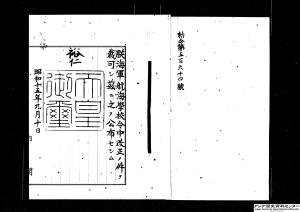 勅令第五百六十四號
朕海軍航海學校令中改正ノ件ヲ
裁可シ茲ニ之ヲ公布セシム
裕仁
天皇御璽
昭和十五年九月十日
内閣
アジア歴史資料センター